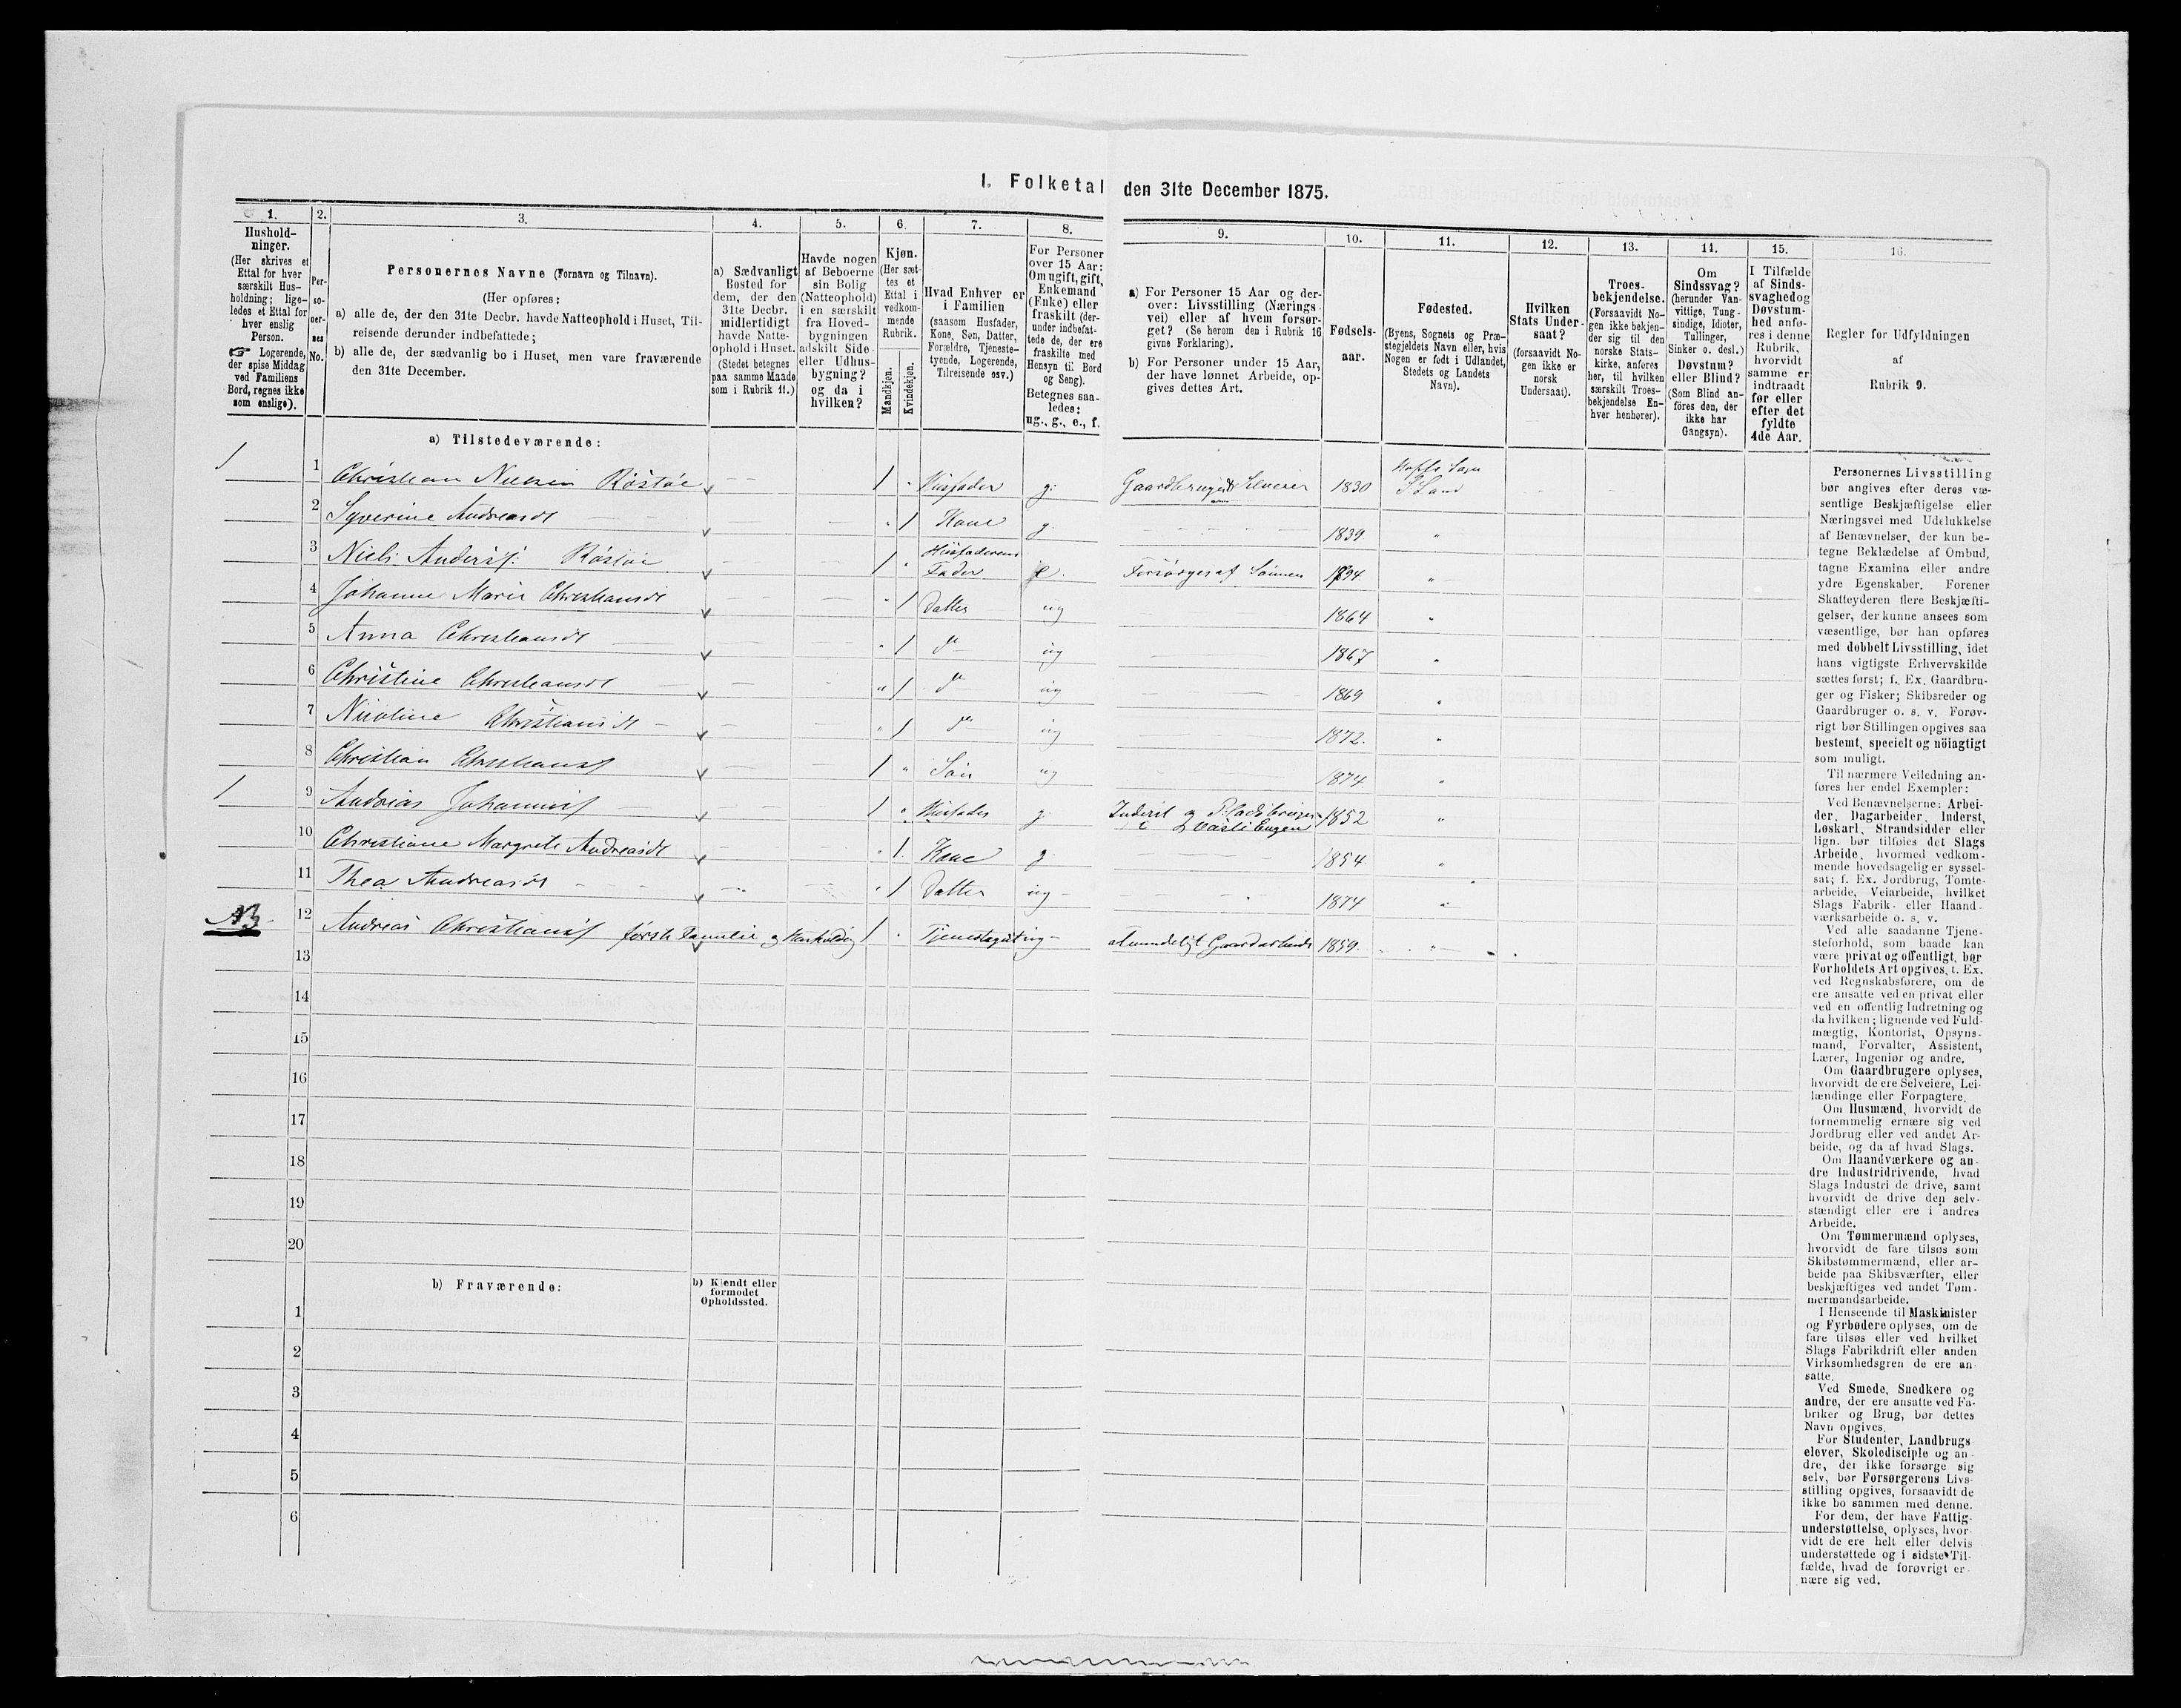 I. Folketal den 31te December 1875.
1.
Hushold-
ninger.
(Her skrives et
Ettal for hver
særskilt Hus-
holdning; lige-
ledes et Ettal for
hver enslig
Person.
☞ Logerende,
der spise Middag
ved Familiens
Bord, regnes ikke
som enslige).
2.
Per-
so-
ner-
nes
No.
3.
Personernes Navne (Fornavn og Tilnavn).
(Her opføres:
a) alle de, der den 31te Decbr. havde Natteophold i Huset, Til-
reisende derunder indbefattede;
b) alle de, der sædvanlig bo i Huset, men vare fraværende
den 31te December.
4.
a) Sædvanligt
Bosted for
dem, der den
31te Decbr.
midlertidigt
havde Natte-
ophold i Huset.
(Stedet betegnes
paa samme Maade
som i Rubrik 11.)
5.
Havde nogen
af Beboerne
sin Bolig
(Natteophold)
i en særskilt
fra Hoved-
bygningen
adskilt Side-
eller Udhus-
bygning?
og da i
hvilken?
6.
Kjøn.
(Her sæt-
tes et
Ettal i
vedkom-
mende
Rubrik.
Mandkjøn.
Kvindekjøn.
7.
Hvad Enhver er
i Familien
(saasom Husfader,
Kone, Søn, Datter,
Forældre, Tjeneste-
tyende, Logerende,
Tilreisende osv.)
8.
For Personer
over 15 Aar:
Om ugift, gift,
Enkemand
(Enke) eller
fraskilt (der-
under indbefat-
tede de, der ere
fraskilte med
Hensyn til Bord
og Seng).
Betegnes saa-
ledes:
ug., g., e., f.
9.
a) For Personer 15 Aar og der-
over: Livsstilling (Nærings-
vei) eller af hvem forsør-
get? (Se herom den i Rubrik 16
givne Forklaring).
b) For Personer under 15 Aar,
der have lønnet Arbeide, op-
gives dettes Art.
10.
Fødsels-
aar.
11.
Fødested.
(Byens, Sognets og Præ-
stegjeldets Navn eller, hvis
Nogen er født i Udlandet,
Stedets og Landets
Navn).
12.
Hvilken
Stats Under-
saat?
(forsaavidt No-
gen ikke er
norsk
Undersaat).
13.
Troes-
bekjendelse.
(Forsaavidt No-
gen ikke bekjen-
der sig til den
norske Stats-
kirke, anføres
her, til hvilken
særskilt Troes-
bekjendelse En-
hver henhører).
14.
Om
Sindssvag?
(herunder Van-
vittige, Tung-
sindige, Idioter,
Tullinger,
Sinker o. desl.)
Døvstum?
eller Blind?
(Som Blind an-
føres den, der
ikke har
Gangsyn).
15.
I Tilfælde
af Sinds-
svaghed og
Døvstum-
hed anfø-
res i denne
Rubrik,
hvorvidt
samme er
indtraadt
før eller
efter det
fyldte
4de Aar.
16.
Regler for Udfyldningen
af
Rubrik 9.
a) Tilstedeværende:
1 1 Christian Nielsen Röstöe 1 " Husfader g: Gaardbruger Selveier 1830 Land
2 Syverine Andreasdt " 1 Kone g. 1839 "
3 Niels Andersf: Röstöe 1 " Husfaderens Fader e. Forsörges af Sönnen 1794 "
4 Johanne Marie Christiansdt " 1 Datter ug 1864 "
5 Anna Christiansdt " 1 do ug 1867 "
6 Christine Christiansdt " 1 do ug 1869 "
7 Nicoline Christiansdt " 1 do ug 1872. "
8 Christian Christiansf 1 " Sön ug 1874 "
1 9 Andreas Johannesf 1 " Husfader g. Inderst og 1852 "
10 Christiane Margrete Andreasdt " 1 Kone g. 1854 "
11 Thea Andreasdt " 1 Datter ug 1874 "
NB 12 Andreas Christiansf förste Familie og Husholdning 1 " Tjenestegut ug Almindeligt Gaardsarbeide 1859 "
13
14
15
16
17
18
19
20
b) Fraværende:
b) Kjendt eller
formodet
Opholdssted.
1
2
3
4
5
6
Personernes Livsstilling
bør angives efter deres væ-
sentlige Beskjæftigelse eller
Næringsvei med Udelukkelse
af Benævnelser, der kun be-
tegne Beklædelse af Ombud,
tagne Examina eller andre
ydre Egenskaber. Forener
Skatteyderen flere Beskjæfti-
gelser, der kunne ansees som
væsentlige, bør han opføres
med dobbelt Livsstilling, idet
hans vigtigste Erhvervskilde
sættes først; f. Ex. Gaardbru-
ger og Fisker; Skibsreder og
Gaardbruger o. s. v. Forøv-
rigt bør Stillingen opgives saa
bestemt, specielt og nöiagtigt
som muligt.
Til nærmere Veiledning an-
føres her endel Exempler:
Ved Benævnelserne: Arbei-
der, Dagarbeider, Inderst,
Løskarl, Strandsidder eller
lign. bør tilføies det Slags
Arbeide, hvormed vedkom-
mende hovedsagelig er syssel-
sat; f. Ex. Jordbrug, Tomte-
arbeide, Veiarbeide, hvilket
Slags Fabrik- eller Haand-
værksarbeide o. s. v.
Ved alle saadanne Tjene-
steforhold, som baade kan
være privat og offentligt, bør
Forholdets Art opgives, t. Ex.
ved Regnskabsførere, om de
ere ansatte ved en privat eller
ved en offentlig Indretning og
da hvilken; lignende ved Fuld-
mægtig, Kontorist, Opsyns-
mand, Forvalter, Assistent,
Lærer, Ingeniør og andre.
Om Gaardbrugere oplyses,
hvorvidt de ere Selveiere, Lei-
lændinge eller Forpagtere.
Om Husmænd, hvorvidt de
fornemmelig ernære sig ved
Jordbrug eller ved andet Ar-
beide, og da af hvad Slags.
Om Haandværkere og an-
dre Industridrivende, hvad
Slags Industri de drive, samt
hvorvidt de drive den selv-
stændigt eller ere i andres
Arbeide.
Om Tømmermænd oplyses,
hvorvidt de fare tilsøs som
Skibstømmermænd, eller ar-
beide paa Skibsværfter, eller
beskjæftiges ved andet Tøm-
mermandsarbeide.
I Henseende til Maskinister
og Fyrbødere oplyses, om de
fare tilsøs eller ved hvilket
Slags Fabrikdrift eller anden
Virksomhedsgren de ere an-
satte.
Ved Smede, Snedkere og
andre, der ere ansatte ved Fa-
briker og Brug, bør dettes
Navn opgives.
For Studenter, Landbrugs-
elever, Skoledisciple og an-
dre, der ikke forsørge sig
selv, bør Forsørgerens Livs-
stilling opgives, forsaavidt de
ikke bo sammen med denne.
For dem, der have Fattig-
understøttelse, oplyses, hvor-
vidt de ere helt eller delvis
understøttede og i sidste Til-
fælde, hvad de forøvrigt er-
nære sig ved.